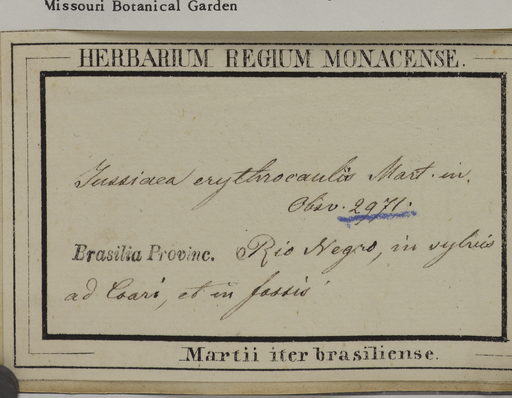 Missouri Botanical Garden
HERBARIUM REGIUM MONACENSE.
Jussiaea erythrocaulis Mart. in.
Obsv. 2971.
Brasilia Provinc. Rio Negro, in sylvis
ad Coari, et in fossis
Martii iter brasiliense.